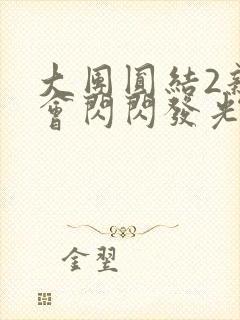 大團圓結2新
會閃閃發光
金翌